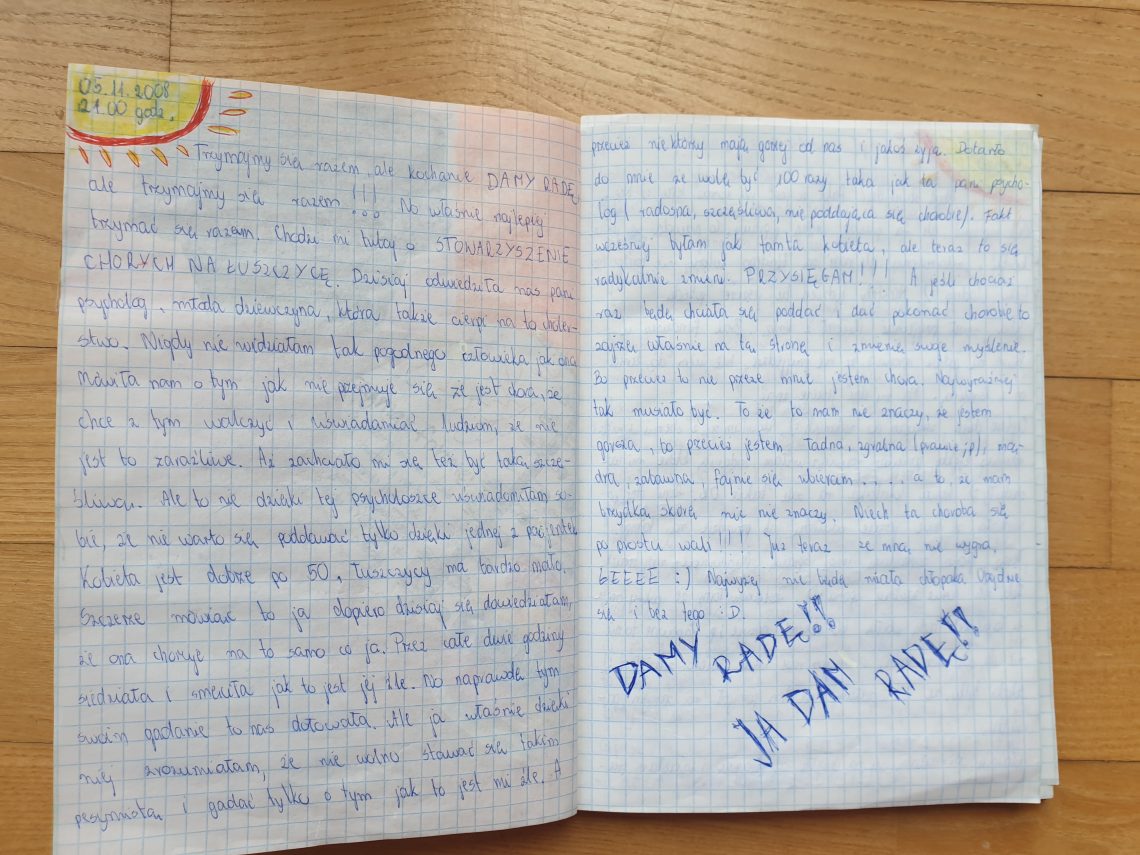 05.11.2008
21.00 godz.
Trzymajmy się razem ale kochanie DAMY RADĘ,
ale trzymajmy się razem!!! No właśnie najlepiej
trzymać się razem. Chodzi mi tutaj o STOWARZYSZENIE
CHORYCH NA ŁUSZCZYCĘ. Dzisiaj odwiedziła nas pani
psycholog, młoda dziewczyna, która także cierpi na to choler-
stwo. Nigdy nie widziałam tak pogodnego człowieka jak ona
mówiła nam o tym jak nie przejmuje się że jest chora, że
chce z tym walczyć i uświadamiać ludziom, że nie
jest to zaraźliwe. Aż zachciało mi się też być taką szczę-
śliwą. Ale to nie dzięki tej psycholożce uświadomiłam so-
bie, że nie warto się poddawać tylko dzięki jednej z pacjentek
Kobieta jest dobrze po 50, łuszczycy ma bardzo mało.
Szczerze mówiąc to ja dopiero dzisiaj się dowiedziałam,
że ona choruje na to samo co ja. Przez całe dwie godziny
siedziała i smęciła jak to jest jej źle. No naprawdę tym
swoim gadanie to nas dołowała. Ale ja właśnie dzięki
niej zrozumiałam, że nie wolno stawać się takim
pesymistą i gadać tylko o tym jak to jest mi źle. A
przecież niektórzy mają gorzej od nas i jakoś żyją. Dotarło
do mnie że wolę być 100 razy taka jak ta pani psycho-
log (radosna, szczęśliwa, nie poddająca się chorobie). Fakt
wcześniej byłam jak tamta kobieta, ale teraz to się
radykalnie zmieni. PRZYSIĘGAM!!! A jeśli chociaż
raz będę chciała się poddać i dać pokonać chorobie to
zajrzę właśnie na tą stronę i zmienię swoje myślenie.
Bo przecież to nie przeze mnie jestem chora. Najwyraźniej
tak musiało być. To że to mam nie znaczy, że jestem
gorsza, bo przecież jestem ładna, zgrabna (prawie ;p), mą-
dra, zabawna, fajnie się ubieram .... a to, że mam
brzydką skórę nic nie znaczy. Niech ta choroba się
po prostu wali!!! Już teraz ze mną nie wygra,
BEEEE :) Najwyżej nie będę miała chłopaka. Obejdzie
się i bez tego :D.
DAMY RADĘ!!
JA DAM RADĘ!!